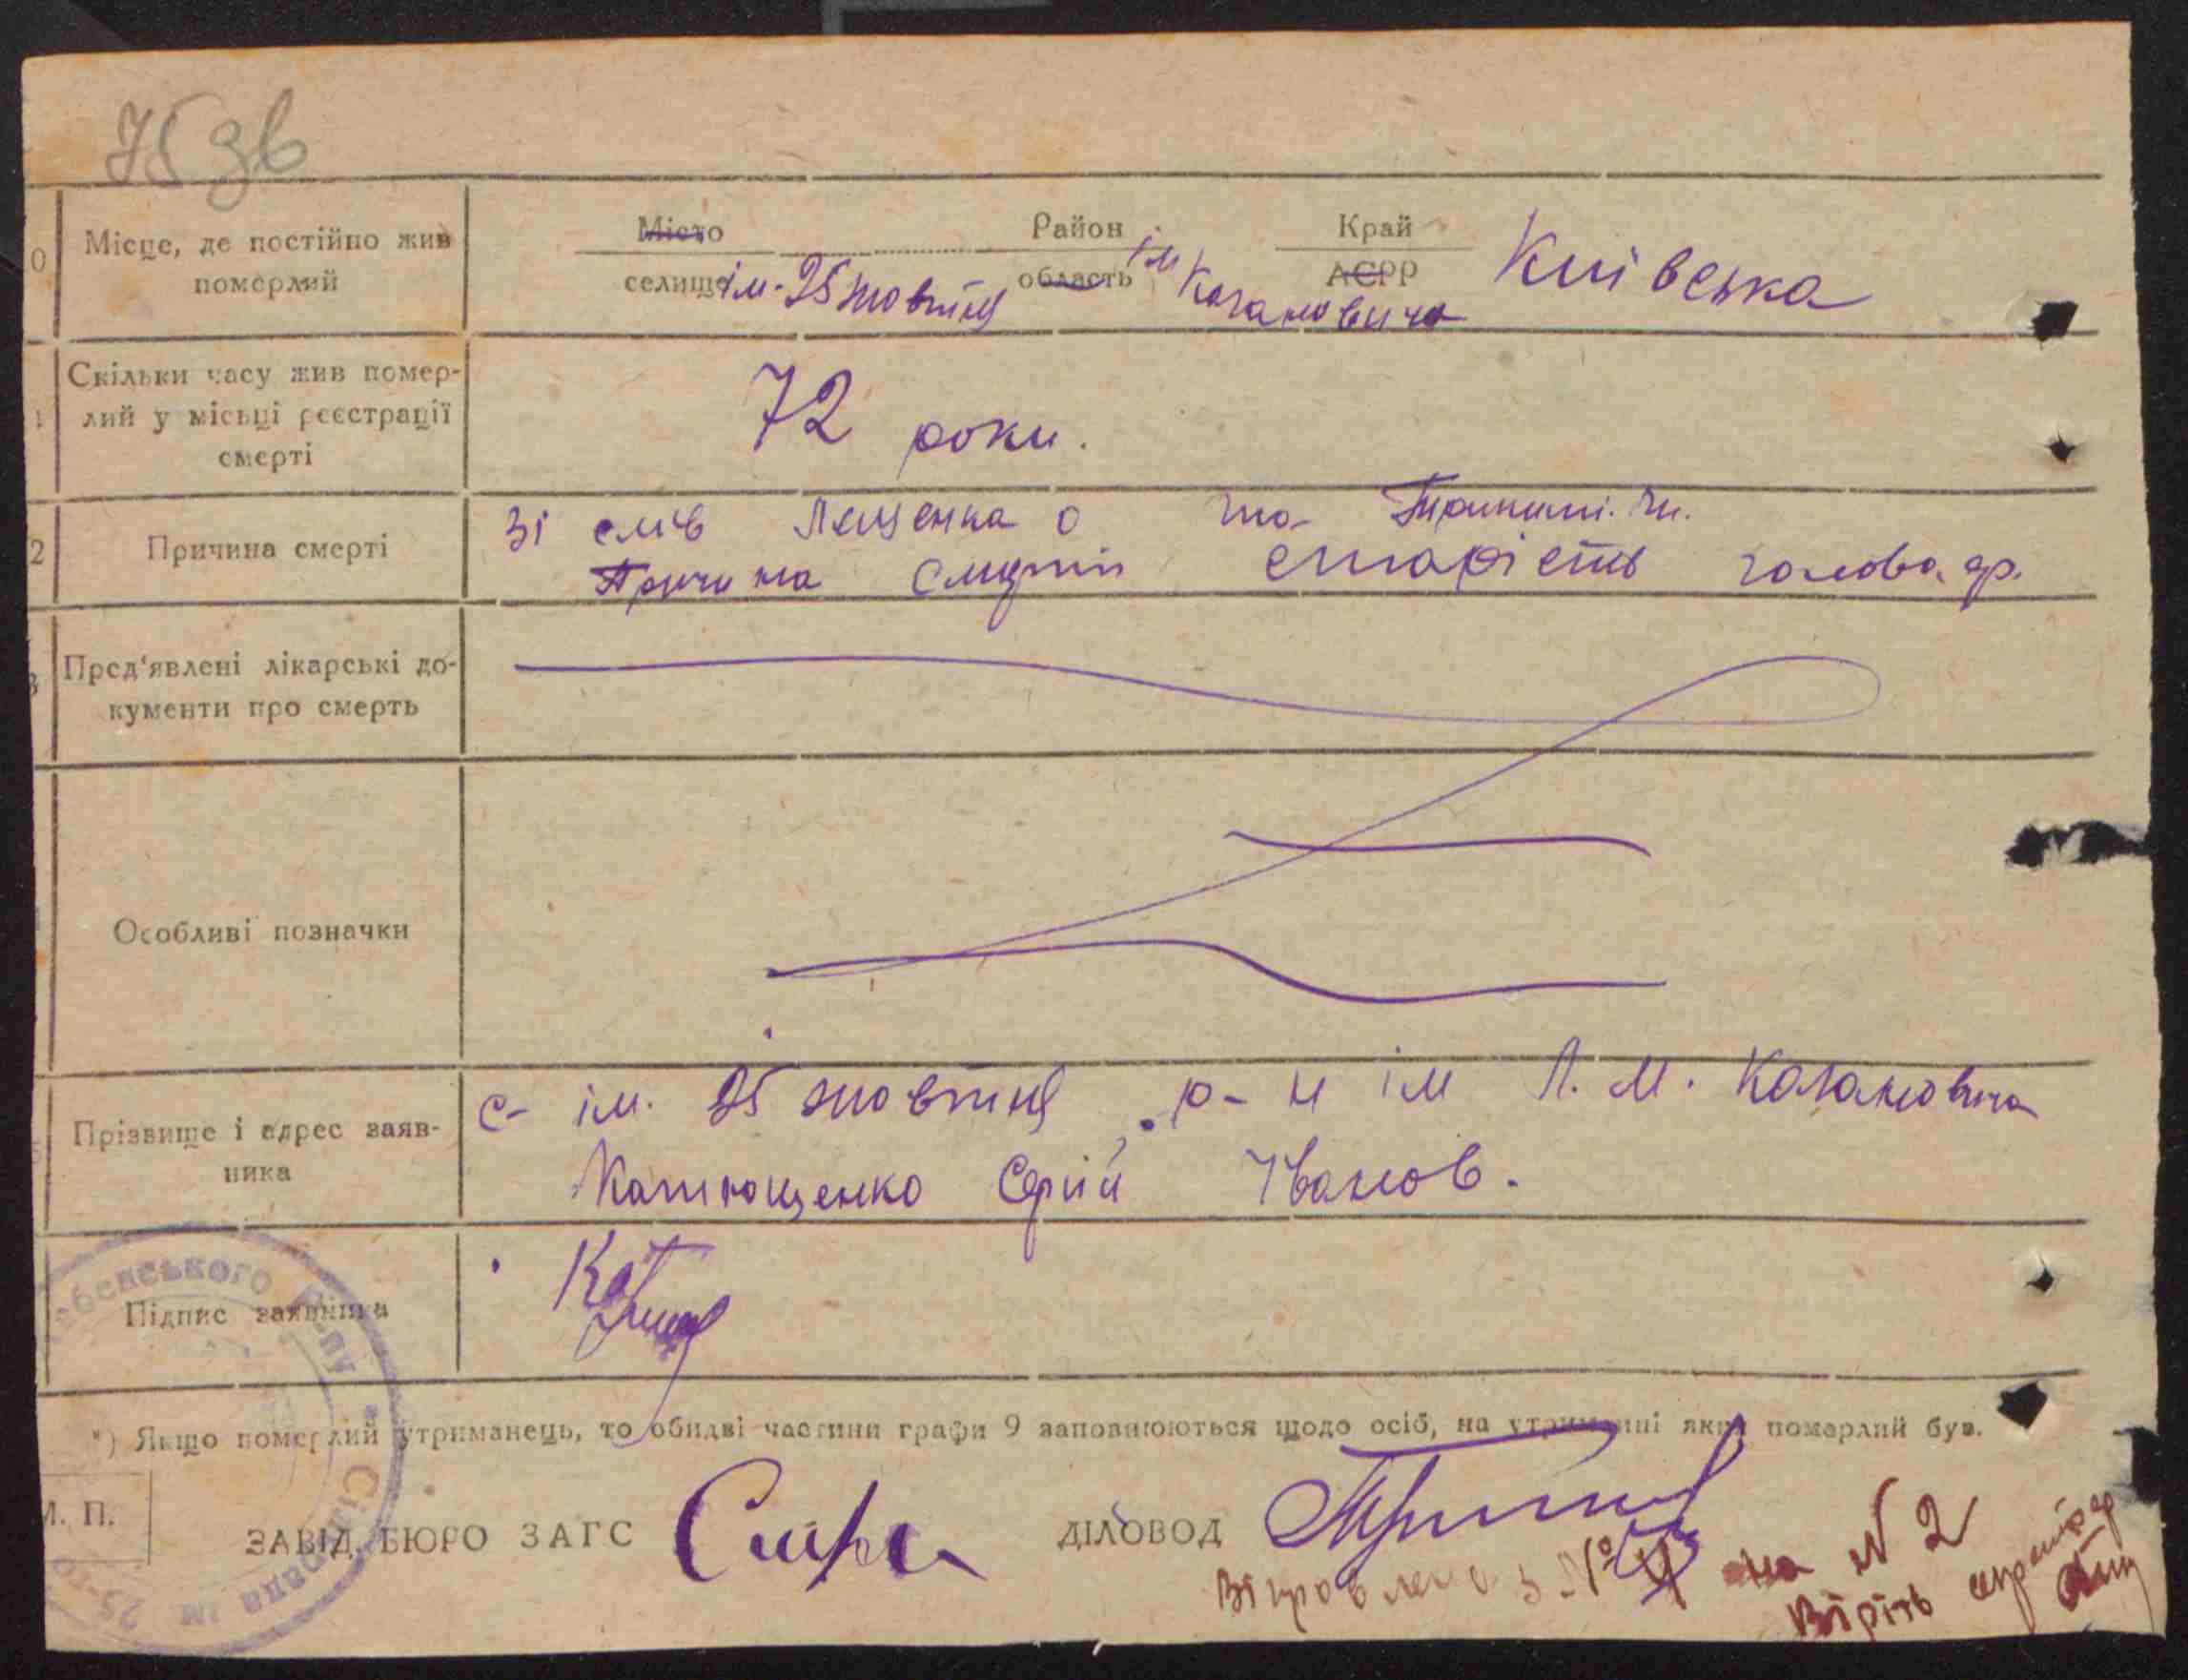 75 зв
0 Місце, де постійно жив померлий
Місто
селище ім. 25 жовтня
Район
область ім Кагановича
Край
АСРР
Київська
Скільки часу жив помер-
лий у місьці реєстрації
смерті
72 роки.
2 Причина смерті
зі слів Лященка О та
Причина смерті старість голова ср.
Пред'явлені лікарські до-
кументи про смерть
Особливі позначки
Прізвище і адрес заяв-
ника
с- ім. 25 жовтня, р-н ім Л. М. Кагановича
Катющенко Сергій Іванов.
Підпис заявника
*) Якщо померлий утриманець, то обидві частини графи 9 заповнюються щодо осіб, на утриманні яких померлий був.
М. П.
ЗАВІД. БЮРО ЗАГС
ДІЛОВОД
Віправлено з № на № 2
Вірить
Сільрада ім 25-го